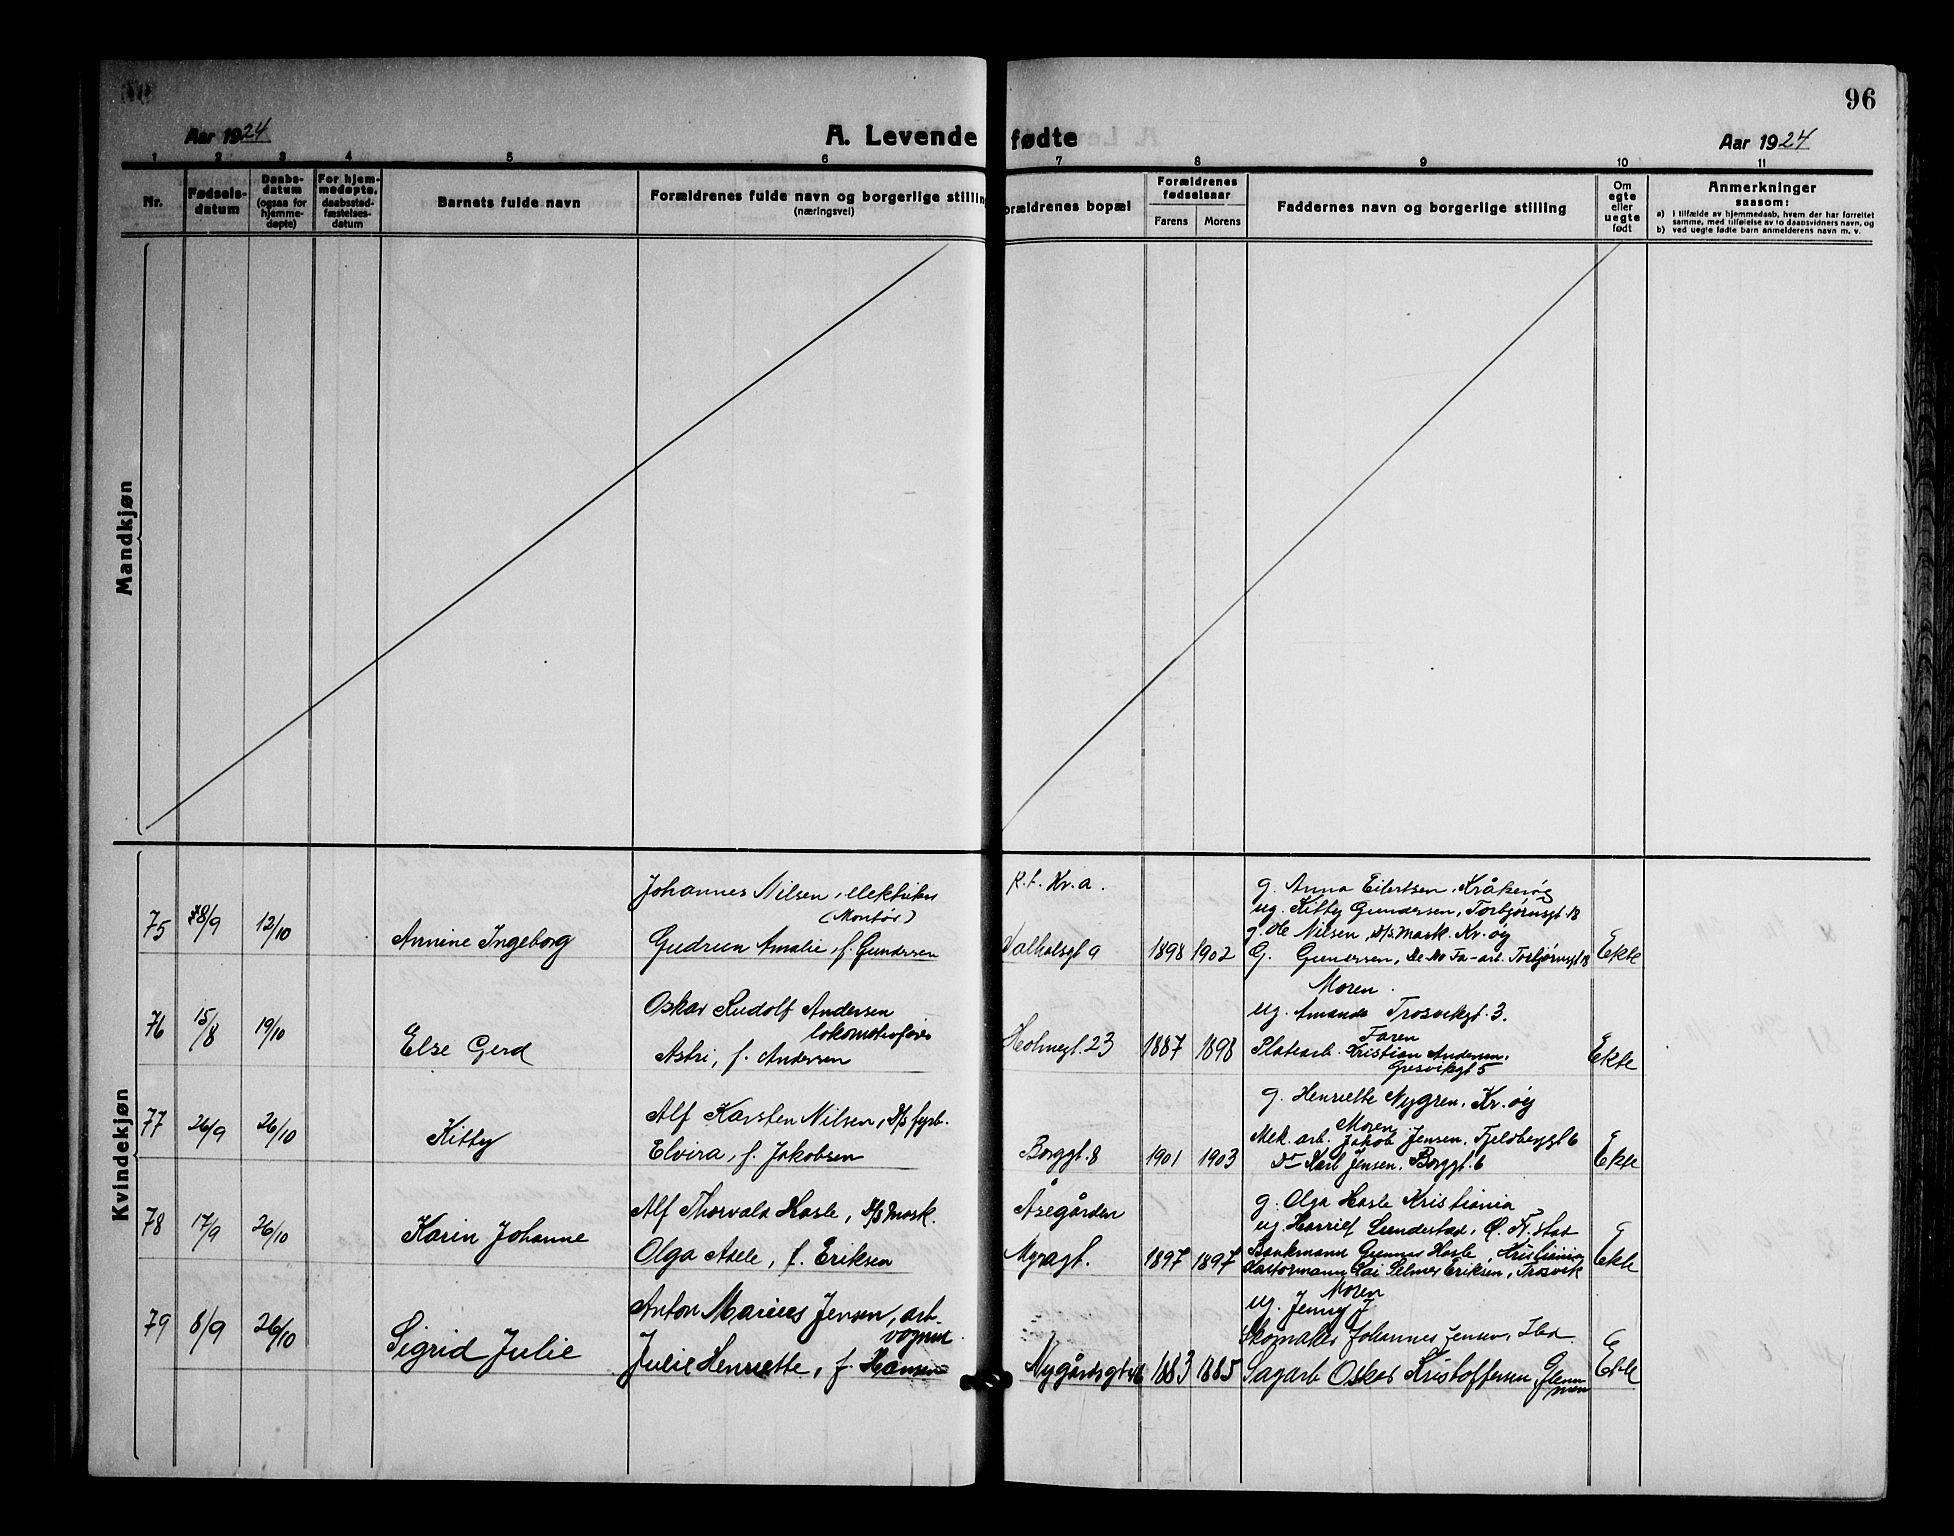 96
Aar 1924
A. Levende fødte
Aar 1924
1 2 3 4 5 6 7 8 9 10 11
Nr.
Fødsels-
datum
Daabs-
datum
(ogsaa for
hjemme-
døpte)
For hjem-
medøpte,
daabsstad-
fæstelses-
datum
Barnets fulde navn
Forældrenes fulde navn og borgerlige stillin
(næringsvei)
orældrenes bopæl
Forældrenes
fødselsaar
Farens Morens
Faddernes navn og borgerlige stilling
Om
egte
eller
uegte
født
Anmerkninger
saasom:
a) i tilfælde av hjemmedaab, hvem der har forrettet
samme, med tilføielse av to daabsvidners navn, og
b) ved uegte fødte barn anmelderens navn m. v.
Mandkjøn
Kvindekjøn
75 8/9 12/10
Annine Ingeborg
Johannes Nilsen, elektriker
(Montør)
Gudrun Amalie, f. Gundersen
R.f. Kr.a.
Valhalsgt 9
1898 1902
g. Anna Eilertsen, Kråkerøy
ug. Kitty Gundersen, Torbjørnsgt. 18
g. Ole Nilsen, D/S Mask. Kr.øy
G. Gundersen, Torbjørnsgt 18
Ekte
76 15/8 19/10
Else Gerd
Oskar Rudolf Andersen
lokomotivfører
Astri, f. Andersen
Holmegt. 23
1887 1898
Moren.
ug. Amanda Trosvikgt. 3.
Faren
Platearb. Kristian Andersen,
Gresvikgt 5
Ekte
77 26/9 26/10
Kitty
Alf Karsten Nilsen, D/S fyrb.
Elvira, f. Jakobsen
Borggt. 8
1901 1903
g. Henriette Nygren, Kr.øy
Moren
Mek. arb. Jakob Jensen, Fjeldberggt 6
Do Karl Jensen, Borggt. 6
Ekte
78 17/9 26/10
Karin Johanne
Alf Thorvald Hasle, D/S Mask.
Olga Adele, f. Eriksen
Åsegården
Myragt.
1897 1897
g. Olga Hasle Kristiania
ug. Harriet Sundestad, F.stad
Bankmann Gunnar Hasle, Kristiania
Kai Selmer Eriksen, Trosvik
Ekte
79 8/9 26/10
Sigrid Julie
Anton Marius Jensen, arb.
vognm.
Julie Henriette, f. Hansen
Nygårdsgt 46
1883 1885
Moren
ug. Jenny J
Skomaker Johannes Jensen, Ibd.
Sagarb Oskar Kristoffersen, Glem-
men
Ekte